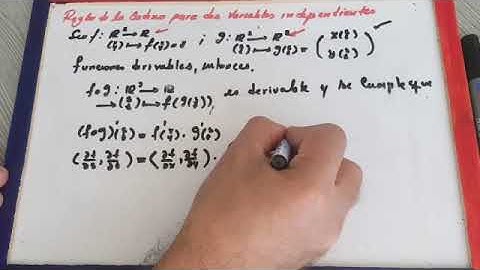 Regla de la Cadena para dos Variables independientes
Sea f: ℝ² → ℝ ; g: ℝ² → ℝ²
f(x y) = z g( ) = (x( ) y( ))
funciones derivables, entonces.
f∘g: ℝ² → ℝ es derivable y se cumple que
→ ( ) ↦ f(g( ))
(f∘g)'( ) = f'( ) · g'( )
(∂f/ , ∂f/ ) = (∂f/∂x , ∂f/∂y) ·